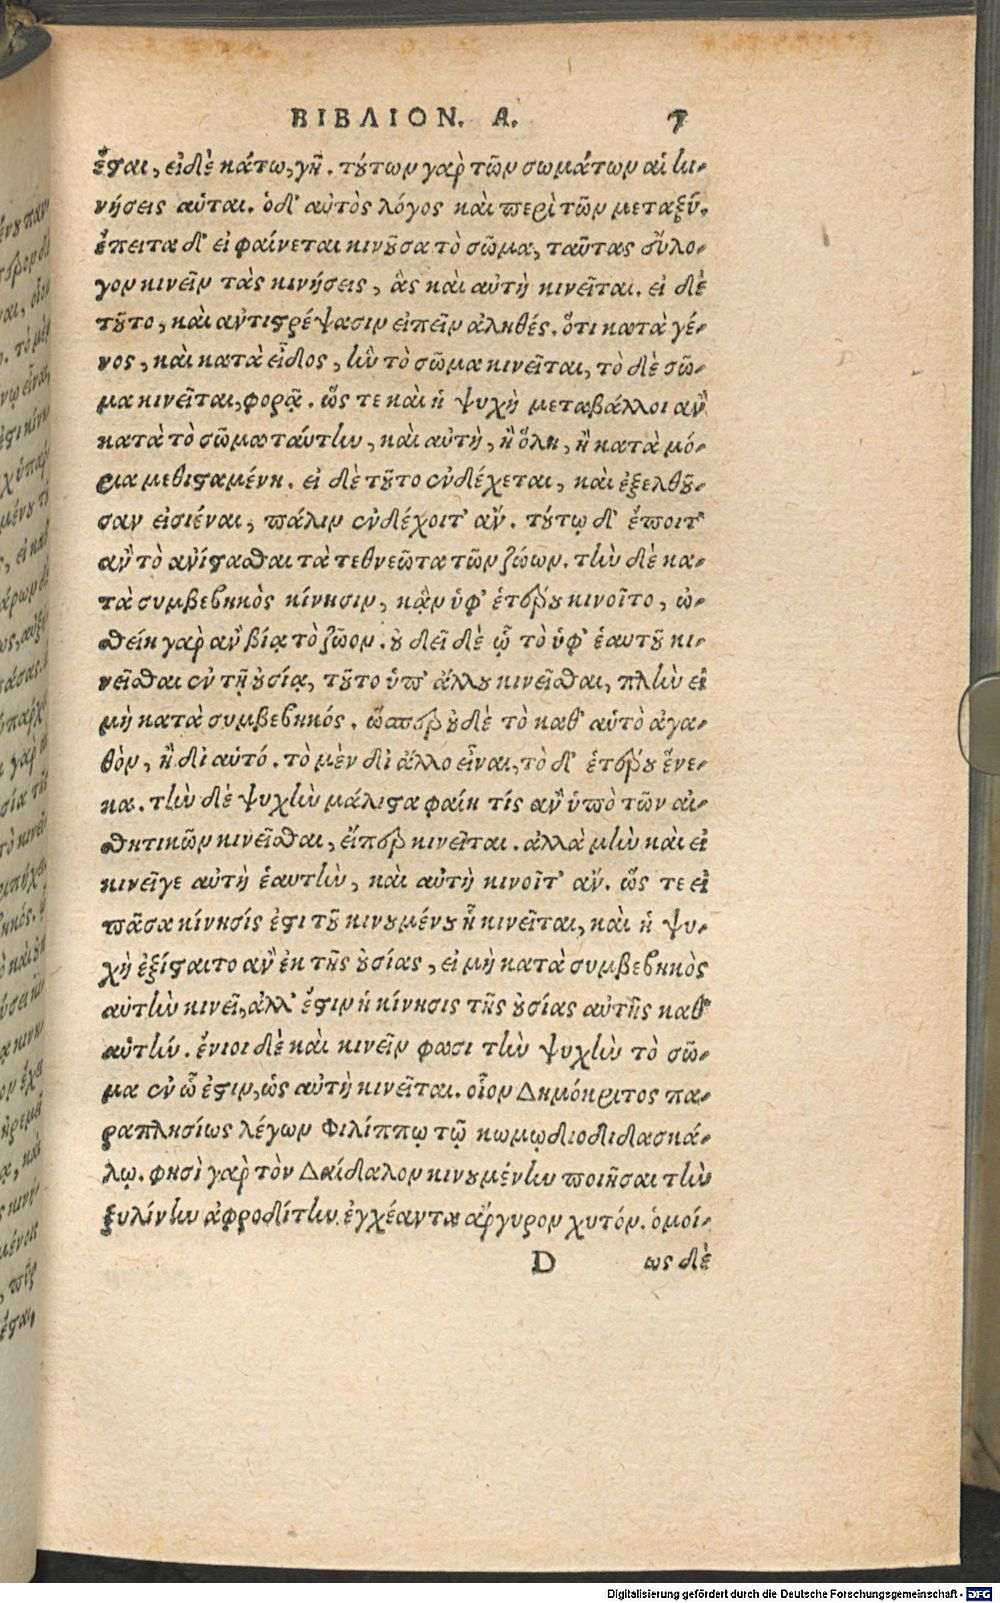 ΒΙΒΛΙΟΝ. Α.
ἔσται, εἰ δὲ κάτω, γῆ. τούτων γὰρ τῶν σωμάτων αἱ κι-
νήσεις αὗται. ὁ δ' αὐτὸς λόγος καὶ περὶ τῶν μεταξύ.
ἔπειτα δ' εἰ φαίνεται κινοῦσα τὸ σῶμα, ταύτας εὔλο-
γον κινεῖν τὰς κινήσεις, ἃς καὶ αὐτὴ κινεῖται. εἰ δὲ
τοῦτο, καὶ ἀντιστρέψασιν εἰπεῖν ἀληθές. ὅτι κατὰ γέ-
νος, καὶ κατὰ εἶδος, ἣν τὸ σῶμα κινεῖται, τὸ δὲ σῶ-
μα κινεῖται, φορᾷ. ὥς τε καὶ ἡ ψυχὴ μεταβάλλοι ἂν
κατὰ τὸ σῶμα ταύτην, καὶ αὐτὴ, ἢ ὅλη, ἢ κατὰ μό-
ρια μεθισταμένη. εἰ δὲ τοῦτο ἐνδέχεται, καὶ ἐξελθοῦ-
σαν εἰσιέναι, πάλιν ἐνδέχοιτ' ἄν. τούτῳ δ' ἕποιτ'
ἂν τὸ ἀνίστασθαι τὰ τεθνεῶτα τῶν ζώων. τὴν δὲ κα-
τὰ συμβεβηκὸς κίνησιν, κἂν ὑφ' ἑτέρου κινοῖτο, ὠ-
σθείη γὰρ ἂν βίᾳ τὸ ζῶον. οὐ δεῖ δὲ ᾧ τὸ ὑφ' ἑαυτοῦ κι-
νεῖσθαι ἐν τῇ οὐσίᾳ, τοῦτο ὑπ' ἄλλου κινεῖσθαι, πλὴν εἰ
μὴ κατὰ συμβεβηκός. ὥσπερ οὐδὲ τὸ καθ' αὑτὸ ἀγα-
θὸν, ἢ δι αὑτό. τὸ μὲν δι ἄλλο εἶναι, τὸ δ' ἑτέρου ἕνε-
κα. τὴν δὲ ψυχὴν μάλιστα φαίη τίς ἂν ὑπὸ τῶν αἰ-
σθητικῶν κινεῖσθαι, εἴπερ κινεῖται. ἀλλὰ μὴν καὶ εἰ
κινεῖ γε αὐτὴ ἑαυτὴν, καὶ αὐτὴ κινοῖτ' ἄν. ὥς τε εἰ
πᾶσα κίνησίς ἐστι τοῦ κινουμένου ᾗ κινεῖται, καὶ ἡ ψυ-
χὴ ἐξίσταιτο ἂν ἐκ τῆς οὐσίας, εἰ μὴ κατὰ συμβεβηκὸς
αὑτὴν κινεῖ, ἀλλ' ἔστιν ἡ κίνησις τῆς οὐσίας αὐτῆς καθ'
αὑτήν. ἔνιοι δὲ καὶ κινεῖν φασι τὴν ψυχὴν τὸ σῶ-
μα ἐν ᾧ ἐστιν, ὡς αὐτὴ κινεῖται. οἷον Δημόκριτος πα-
ραπλησίως λέγων Φιλίππῳ τῷ κωμῳδιοδιδασκά-
λῳ. φησὶ γὰρ τὸν Δαίδαλον κινουμένην ποιῆσαι τὴν
ξυλίνην ἀφροδίτην. ἐγχέαντα ἄργυρον χυτόν. ὁμοί-
D ως δὲ
Digitalisierung gefördert durch die Deutsche Forschungsgemeinschaft - DFG